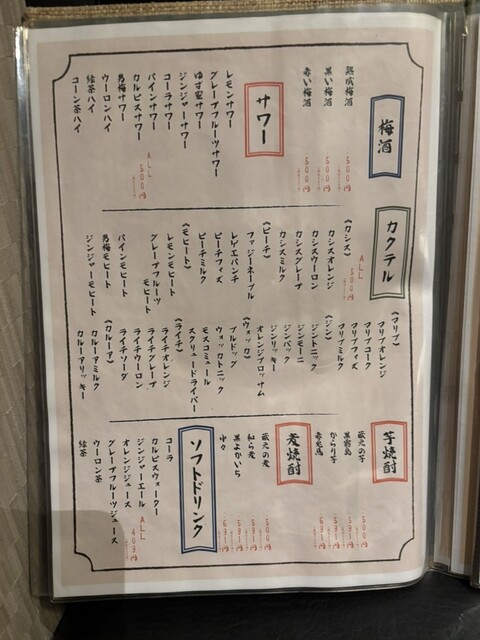 梅酒
熟成梅酒 500円
黒い梅酒 500円
赤い梅酒 500円
サワー
レモンサワー
グレープフルーツサワー
ゆず蜜サワー
ジンジャーサワー
コーラサワー
パインサワー
カルピスサワー
男梅サワー
ウーロンハイ
緑茶ハイ
コーン茶ハイ
ALL 500円
カクテル
ALL 500円
《カシス》
カシスオレンジ
カシスウーロン
カシスグレープ
カシスミルク
《ピーチ》
ファジーネーブル
レゲエパンチ
ピーチフィズ
ピーチミルク
《モヒート》
レモンモヒート
グレープフルーツ
モヒート
パインモヒート
男梅モヒート
ジンジャーモヒート
《アプリコ》
アプリオレンジ
アプリコーク
アプリフィズ
アプリミルク
《ジン》
ジントニック
ジンモーニ
ジンバック
ジンリッキー
オレンジブロッサム
《ウォッカ》
ブルドッグ
ウォッカトニック
モスコミュール
スクリュードライバー
《ライチ》
ライチオレンジ
ライチグレープ
ライチウーロン
ライチソーダ
《カルーア》
カルーアミルク
カルーアリッキー
芋焼酎
蔵元の芋 500円
黒霧島 591円
からり芋 591円
赤兎馬 691円
麦焼酎
蔵元の麦 500円
和ら麦 500円
黒よかいち 591円
中々 691円
ソフトドリンク
コーラ
カルピスウォーター
ジンジャーエール
オレンジジュース
グレープフルーツジュース
ウーロン茶
緑茶
ALL 409円